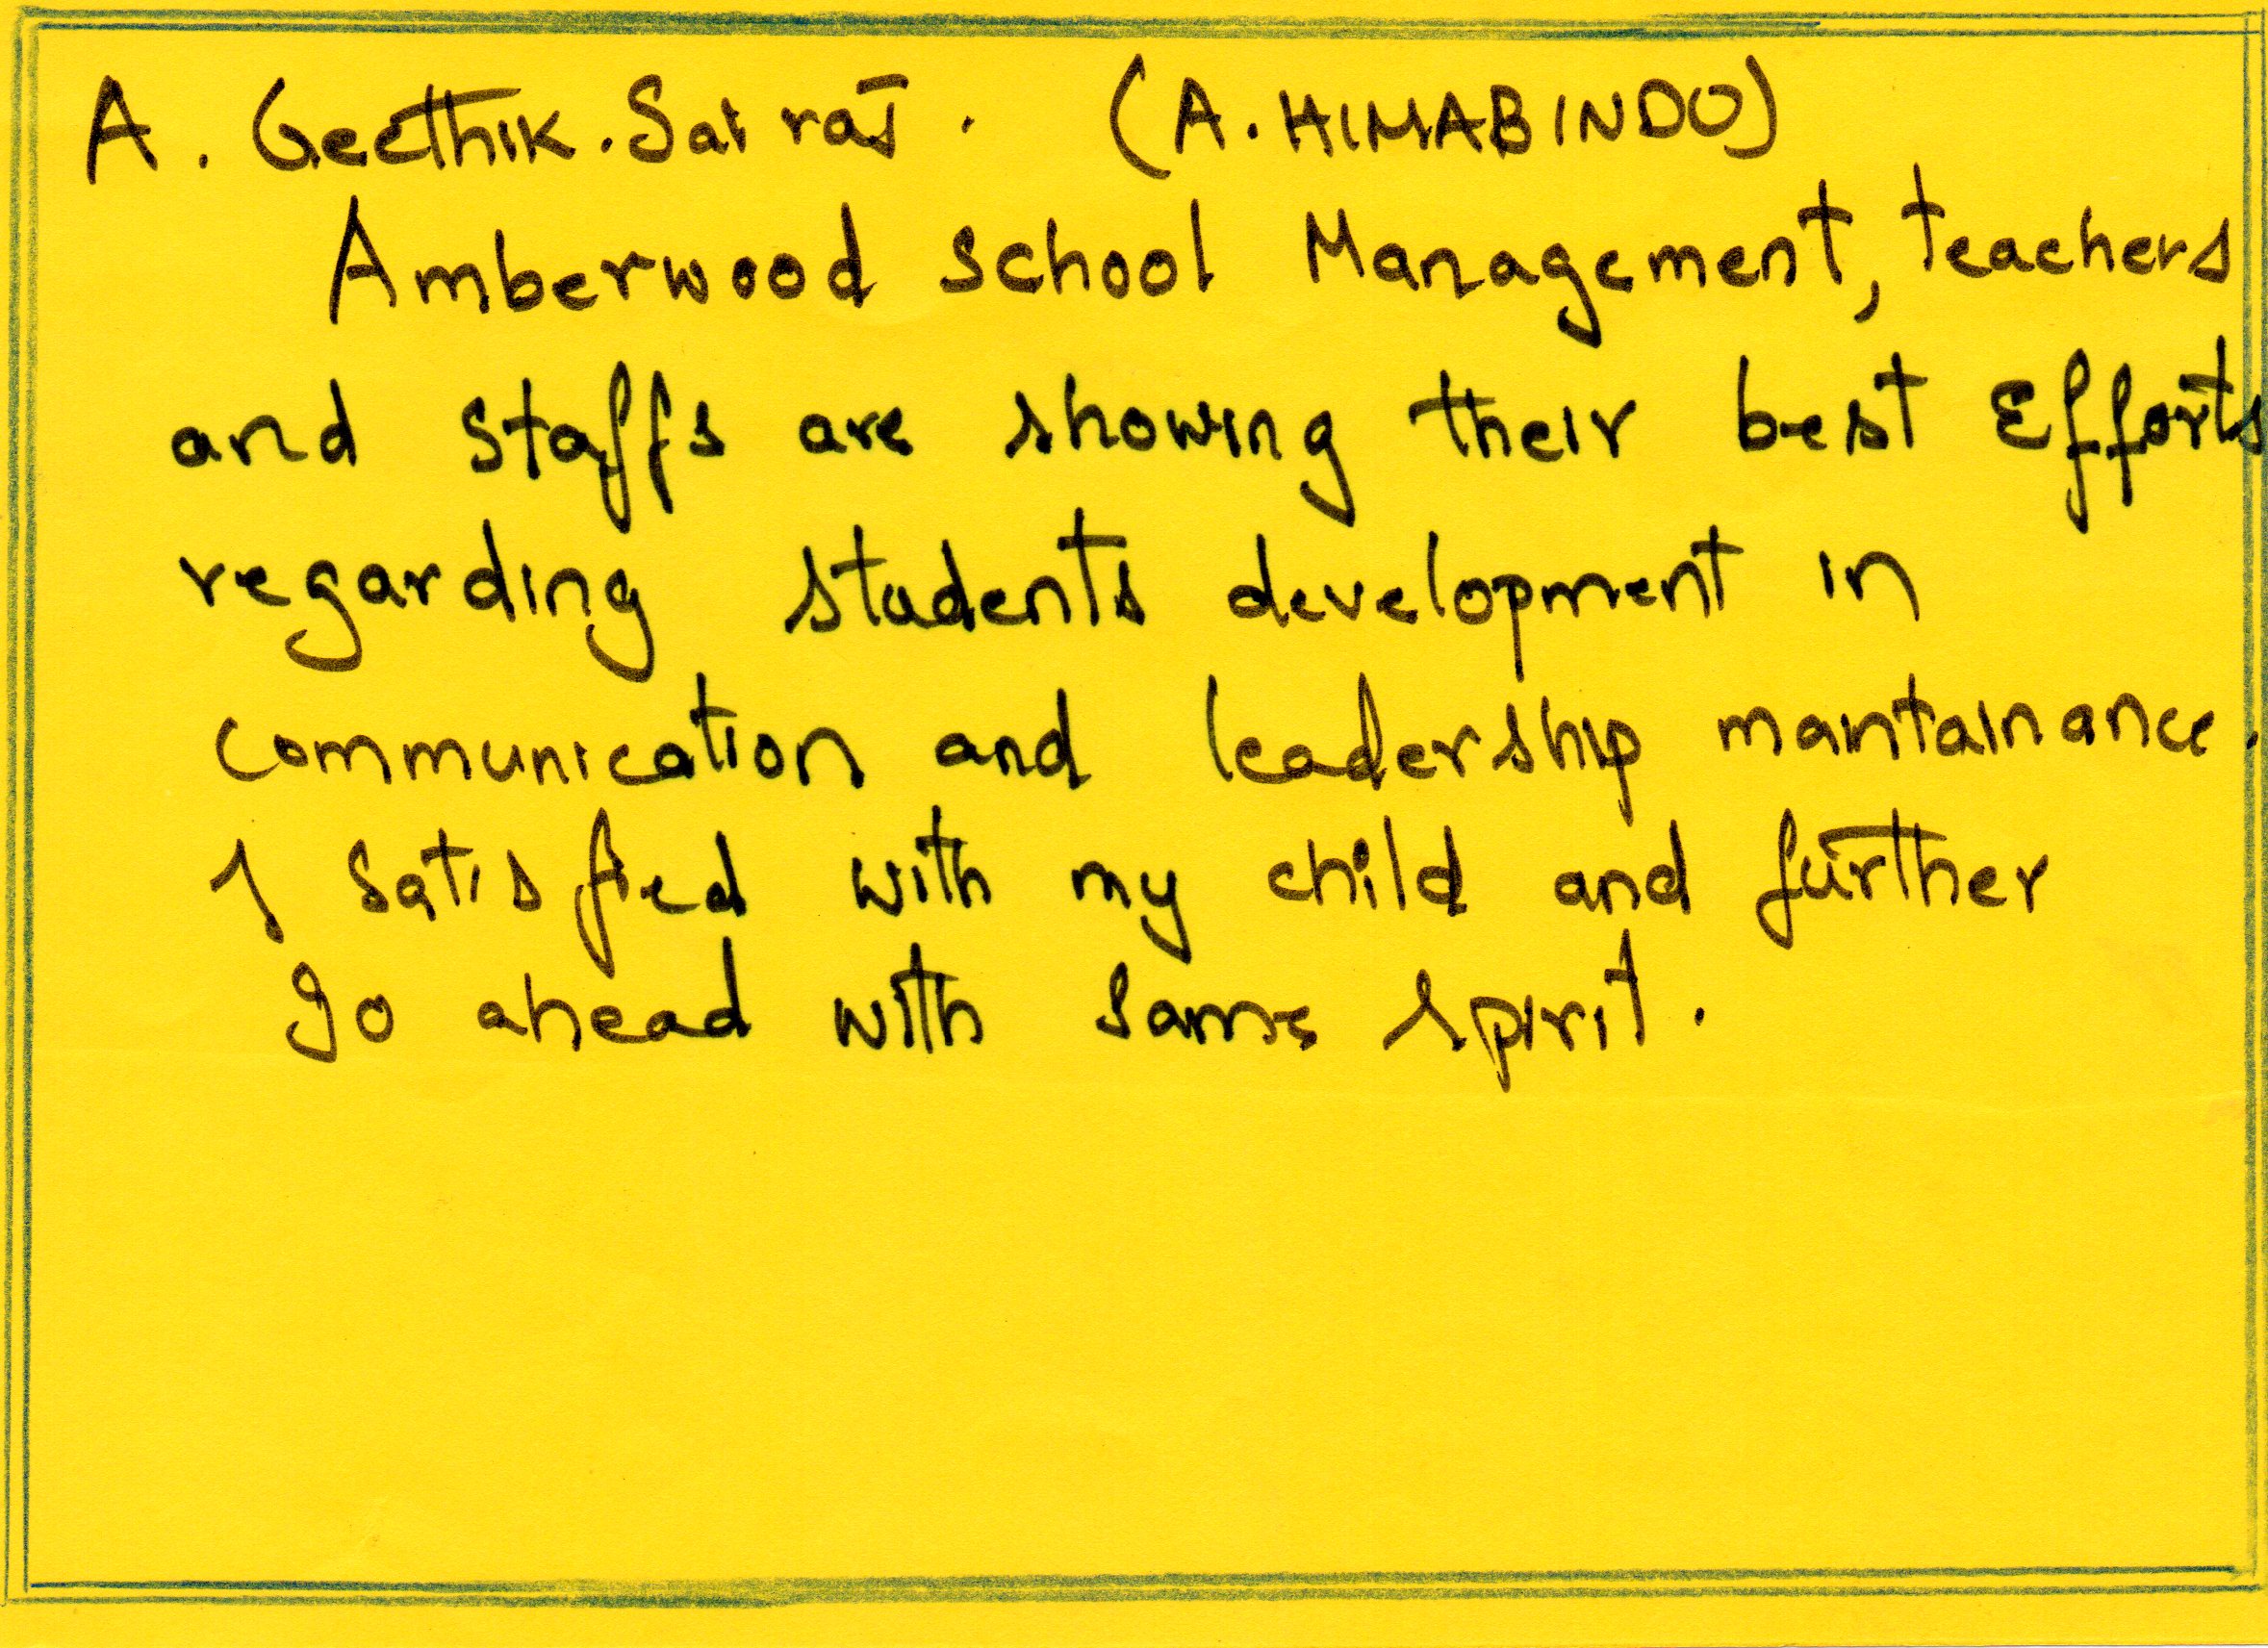 A. Geethik. Sai raj. (A. HIMABINDU)
Amberwood school Management, teachers
and staffs are showing their best Efforts
regarding students development in
communication and leadership maintainance.
I satisfied with my child and further
go ahead with same spirit.